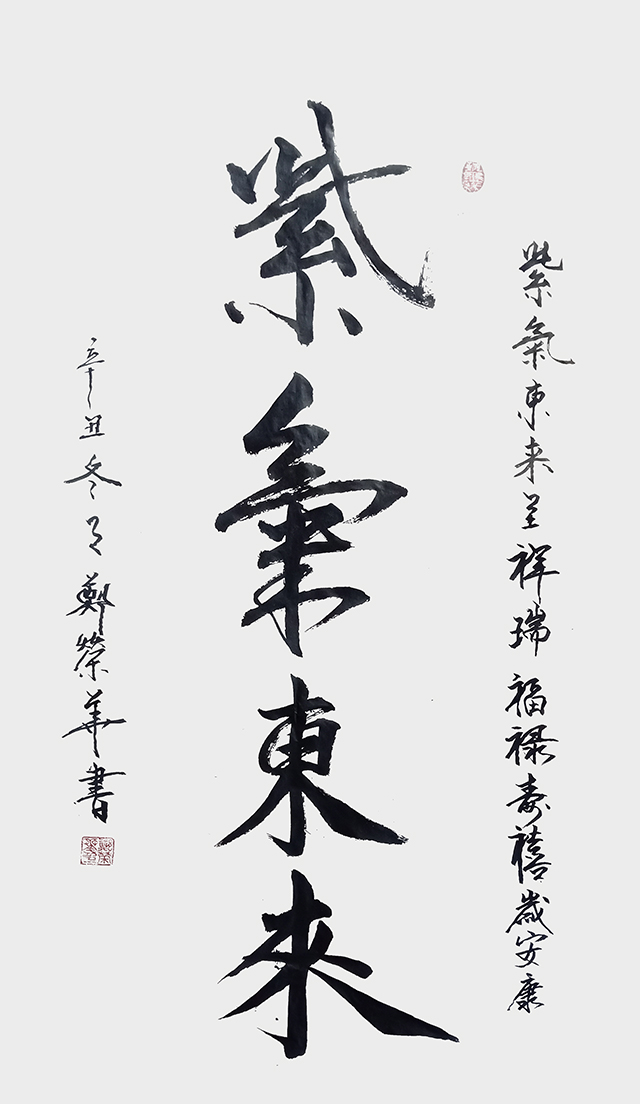 紫氣東来呈祥瑞福禄壽禧歲安康
紫氣東來
辛丑冬月鄭榮華書